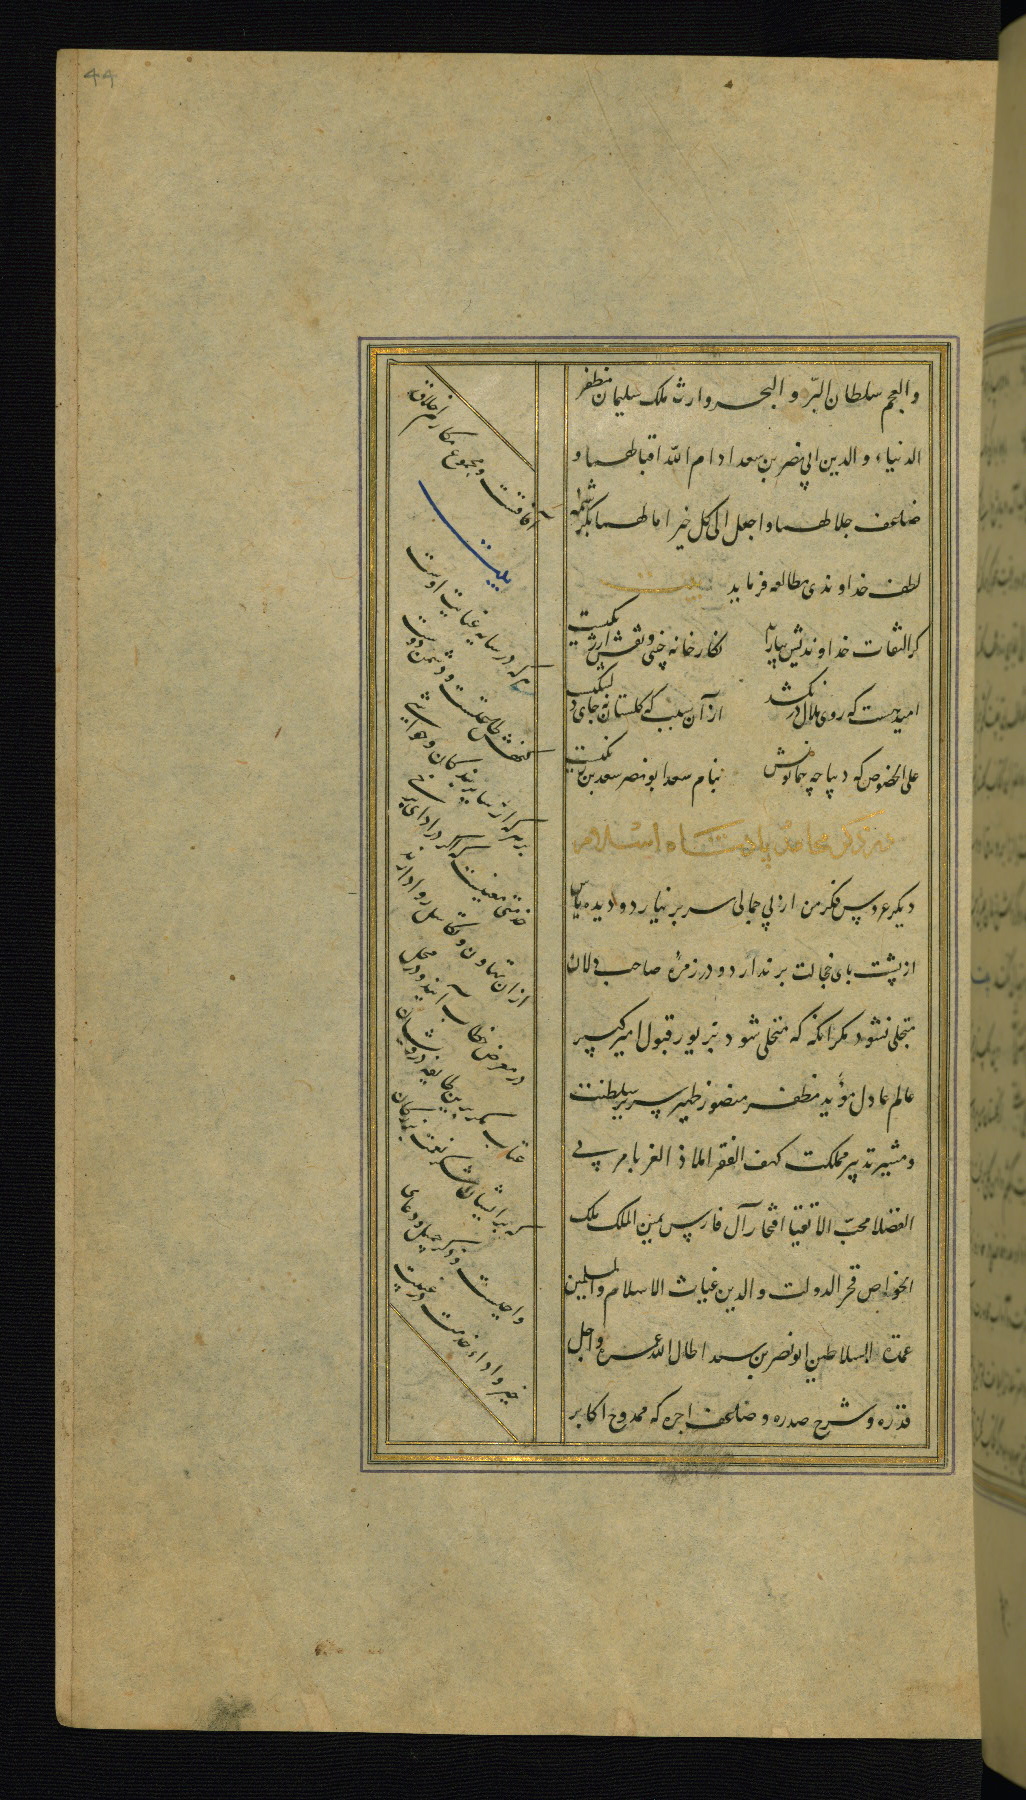 44
والعجم سلطان البرّ والبحر وارث ملک سلیمان مظفر
الدنیاء والدین ابی نصر بن سعد ادام الله اقبالهما و
ضاعف جلالهما واجعل الی کل خیر امالهما بکرشمهٔ
لطف خداوندی مطالعه فرماید بیت
کر التفات خداوندیش بیاراید نکارخانه چینی و نقش ارژنکیست
امید هست که روی ملال در نکشد از آن سبب که کلستان نه جای دلتنکیست
علی الخصوص که دیباچه همایونش بنام سعد ابو نصر سعد بن زنکیست
در ذکر محامد پادشاه اسلام
دیکر عروس فکر من از بی جمالی سر برنیارد و دیده یاس
از پشت پای خجالت برندارد و در زمرهٔ صاحب دلان
متجلی نشود مکر انکه که متحلی شود بزیور قبول امیر کبیر
عالم عادل مؤید مظفر منصور ظهیر سریر سلطنت
و مشیر تدبیر مملکت کهف الفقرا ملاذ الغربا مربی
الفضلا محبّ الاتقیا افتخار آل فارس یمین الملک ملک
الخواص فخر الدولت والدین غیاث الاسلام والمسلمین
عمدة السلاطین ابو نصر بن سعد اطال الله عمره واجل
قدره وشرح صدره وضاعف اجره که ممدوح اکابر
آفاقست و مجموع مکارم اخلاق
بیت
هرکه در سایه عنایت اوست
کنهش طاعتست و دشمن دوست
بر هرکه از سایر بندکان و حواشی
خدمتی معینست که اکر در ادای برخی
از ان تهاون و تکاسل روا دارند
در معرض خطاب آیند و در محل
عتاب مکر برین طایفه درویشان
که بر ایشان شکر نعمت بزرکان
واجبست و ذکر جمیل و دعای
خیر و اداء خدمت در غیبت